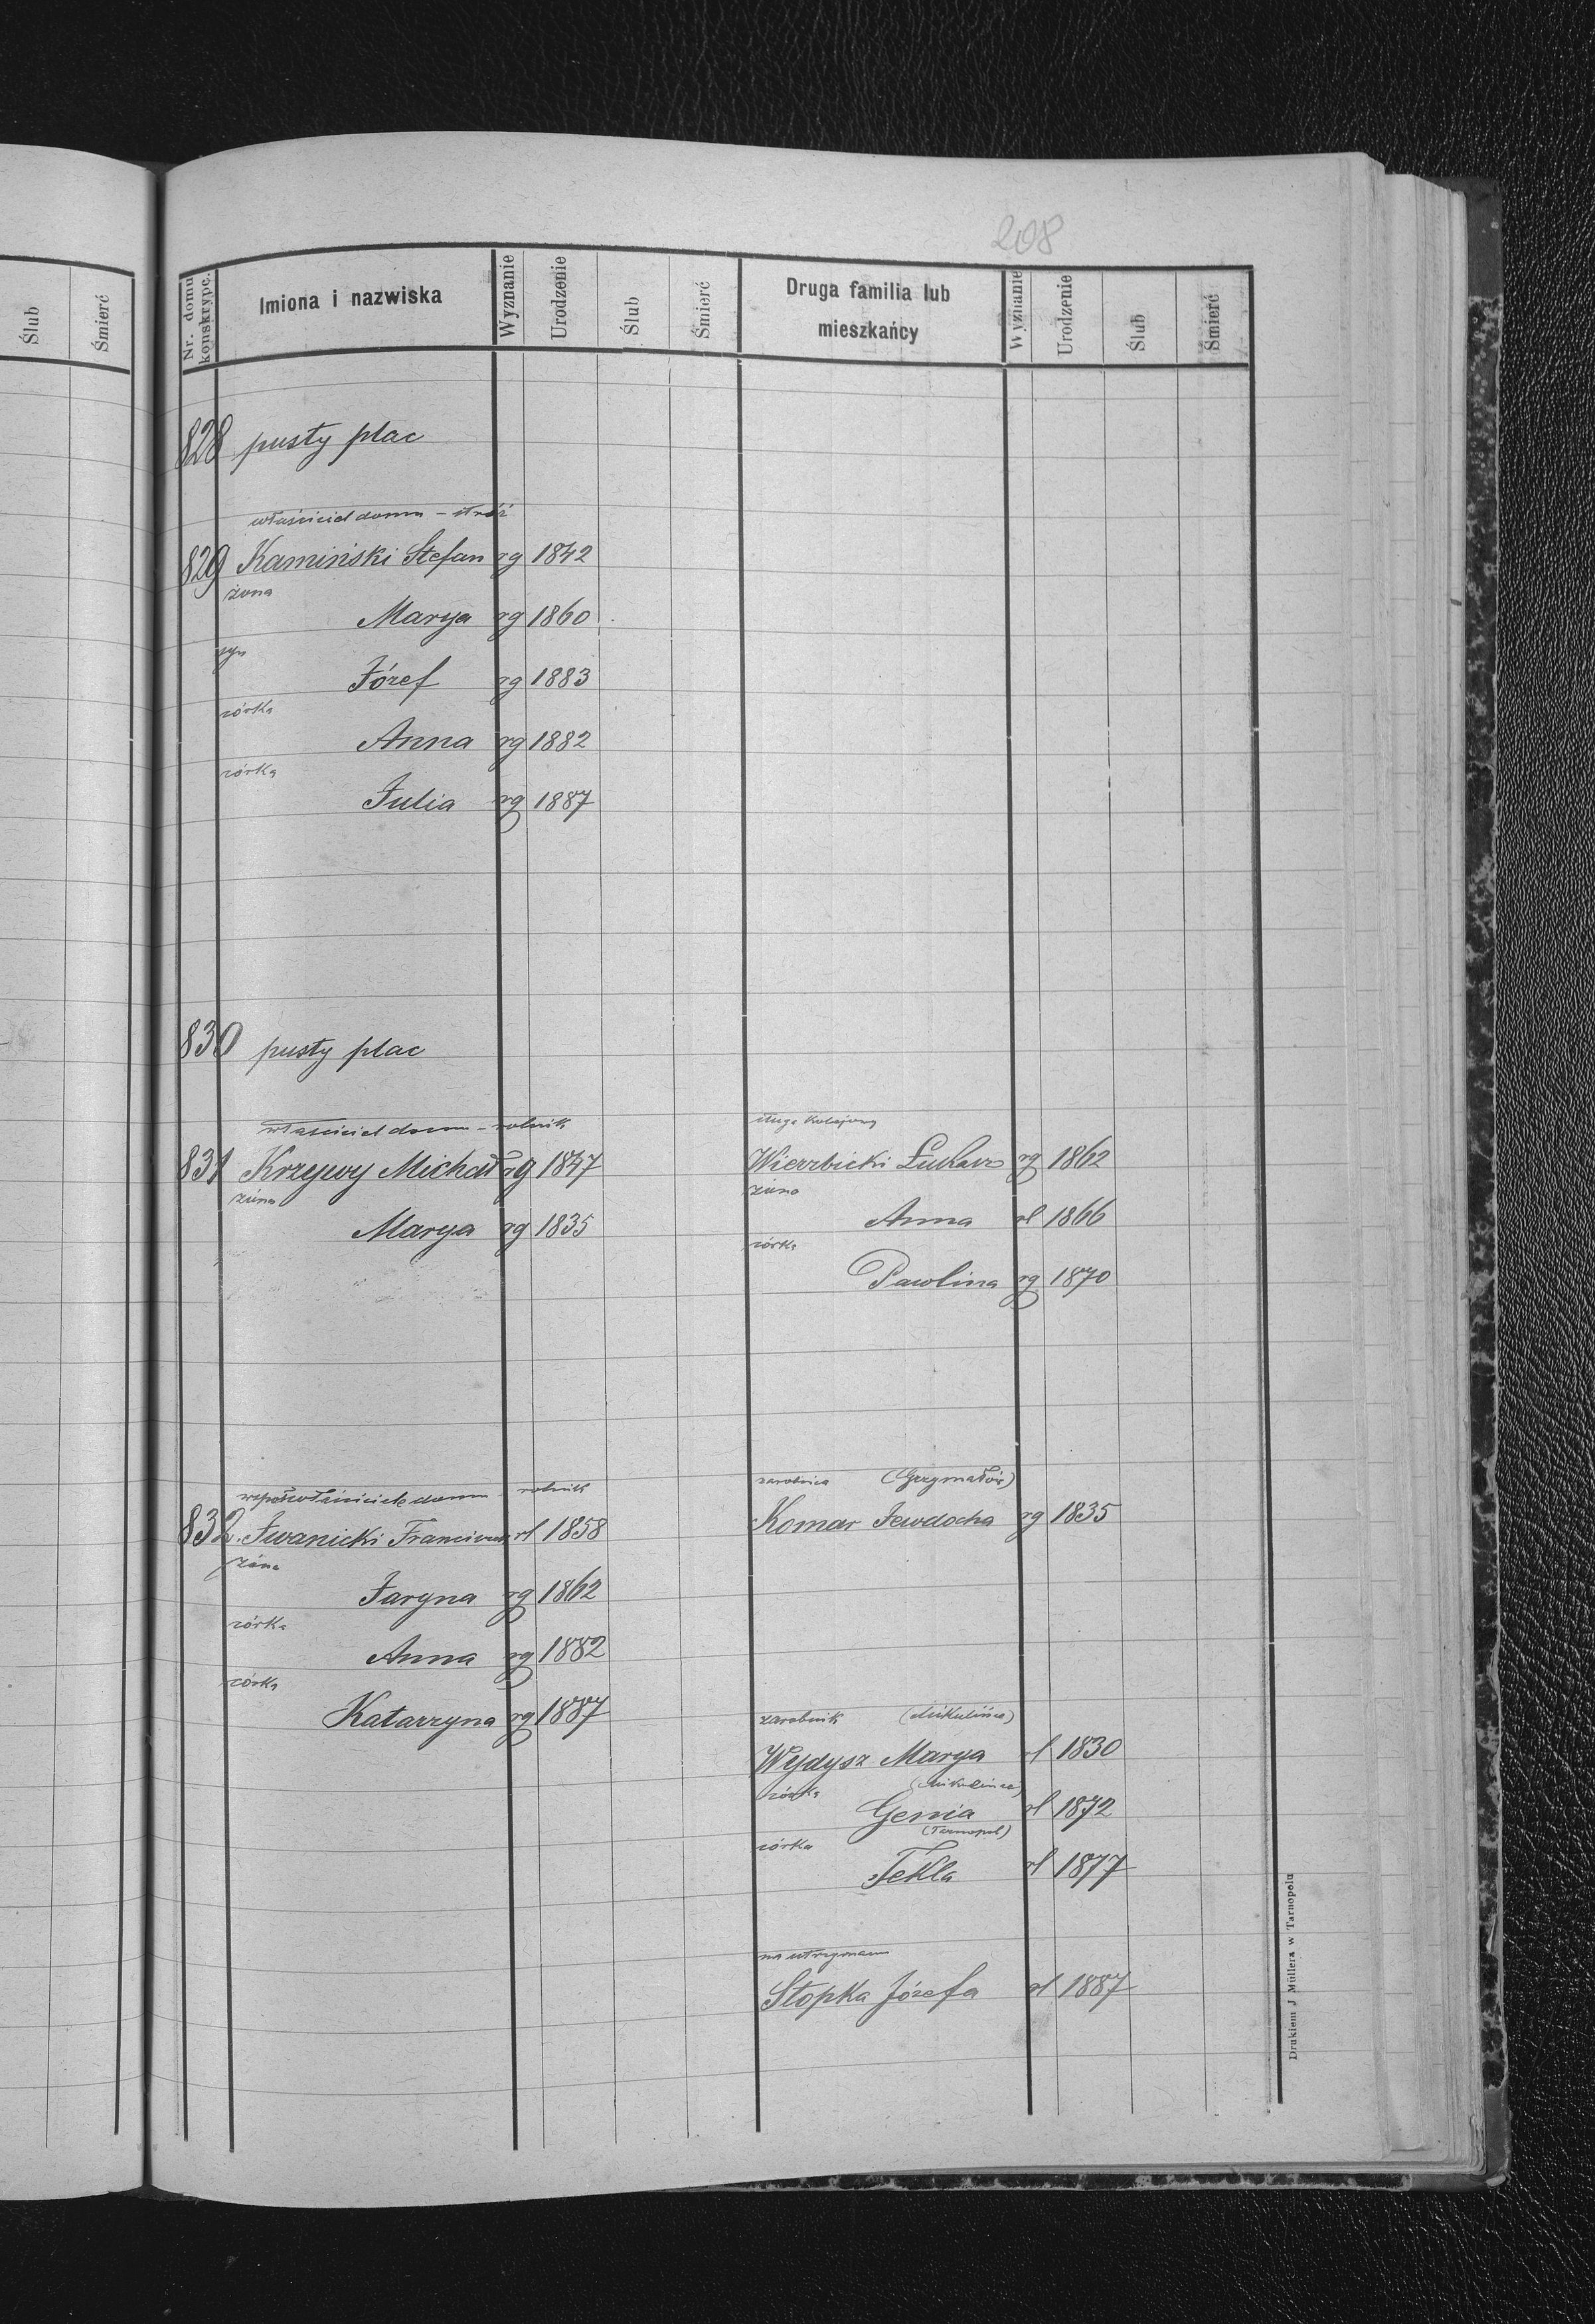 208
Ślub Śmierć
Nr. domu konskrypc. Imiona i nazwiska Wyznanie Urodzenie Ślub Śmierć Druga familia lub mieszkańcy Wyznanie Urodzenie Ślub Śmierć
828 pusty plac
właściciel domu - stróż
829 Kamiński Stefan rg 1842
żona
Marya rg 1860
syn
Józef rg 1883
córka
Anna rg 1882
córka
Julia rg 1887
830 pusty plac
właściciel domu - rolnik
831 Krzywy Michał rg 1847
żona
Marya rg 1835
sługa kolejowy
Wierzbicki Łukasz rg 1862
żona
Anna rl 1866
córka
Pawlina rg 1870
współwłaściciel domu - rolnik
832. Iwanicki Franciszek rl 1858
żona
Jaryna rg 1862
córka
Anna rg 1882
córka
Katarzyna rg 1887
zarobnica (Grzymałów)
Komar Jewdocha rg 1835
zarobnik (Mikulińce)
Wejdysz Marya rl 1830
córka (Mikulińce)
Genia rl 1872
córka (Tarnopol)
Tekla rl 1877
na utrzymaniu
Stopka Józefa rl 1887
Drukiem J Müllera w Tarnopolu